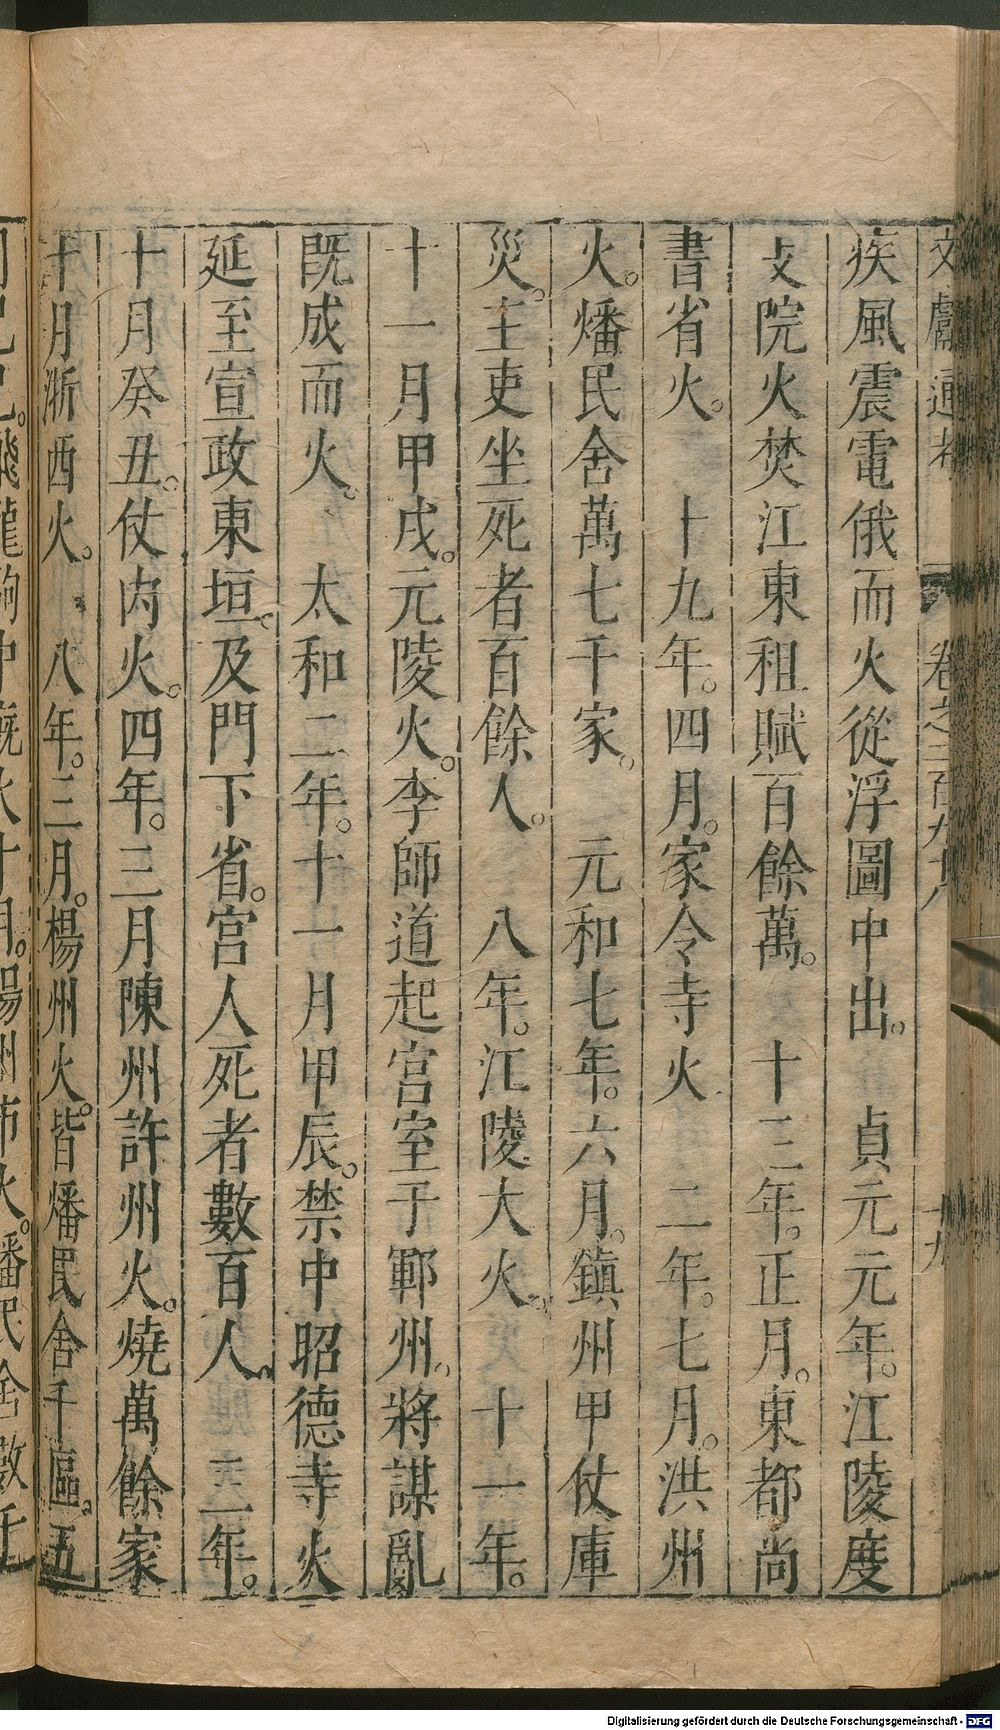 文獻通考 卷之二百九十八 十九
疾風震電俄而火從浮圖中出。 貞元元年。江陵度
支院火焚江東租賦百餘萬。 十三年。正月。東都尚
書省火。 十九年。四月。家令寺火 二年。七月。洪州
火。燔民舍萬七千家。 元和七年。六月。鎮州甲仗庫
災。主吏坐死者百餘人。 八年。江陵大火。 十一年。
十一月甲戌。元陵火。李師道起宮室于鄆州。將謀亂
既成而火。 太和二年。十一月甲辰。禁中昭德寺火
延至宣政東垣。及門下省。宮人死者數百人。 三年。
十月癸丑。仗內火。四年。三月陳州許州火。燒萬餘家
十月浙西火。 八年。三月。楊州火。皆燔民舍千區。五
龍 中廐火十月。楊州市火。燔民舍數千
Digitalisierung gefördert durch die Deutsche Forschungsgemeinschaft - DFG